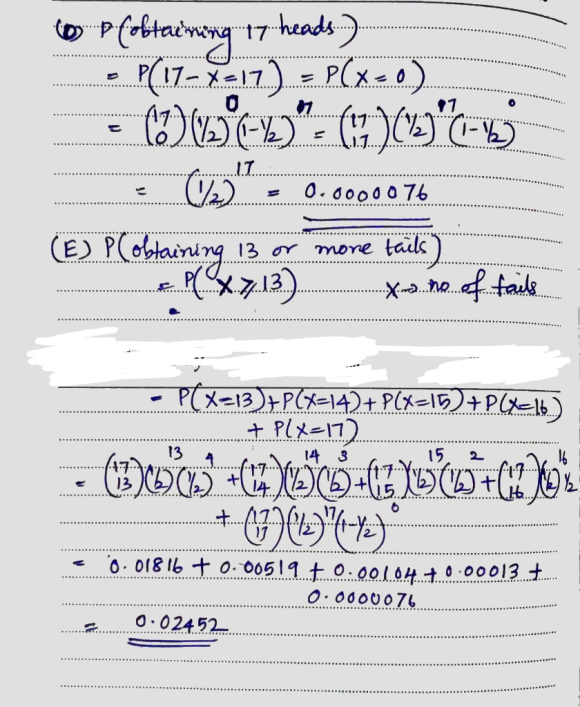 (D) P(obtaining 17 heads)
= P(17-X=17) = P(X=0)
= (17 0)(1/2)^0(1-1/2)^17 = (17 17)(1/2)^17(1-1/2)^0
= (1/2)^17 = 0.0000076
(E) P(obtaining 13 or more tails)
= P(X⩾13) X→ no of tails
= P(X=13)+P(X=14)+P(X=15)+P(X=16)
+ P(X=17)
= (17 13)(1/2)^13(1/2)^4 +(17 14)(1/2)^14(1/2)^3+(17 15)(1/2)^15(1/2)^2+(17 16)(1/2)^16 1/2
+ (17 17)(1/2)^17(1-1/2)^0
= 0.01816 + 0.00519 + 0.00104 + 0.00013 +
0.0000076
= 0.02452